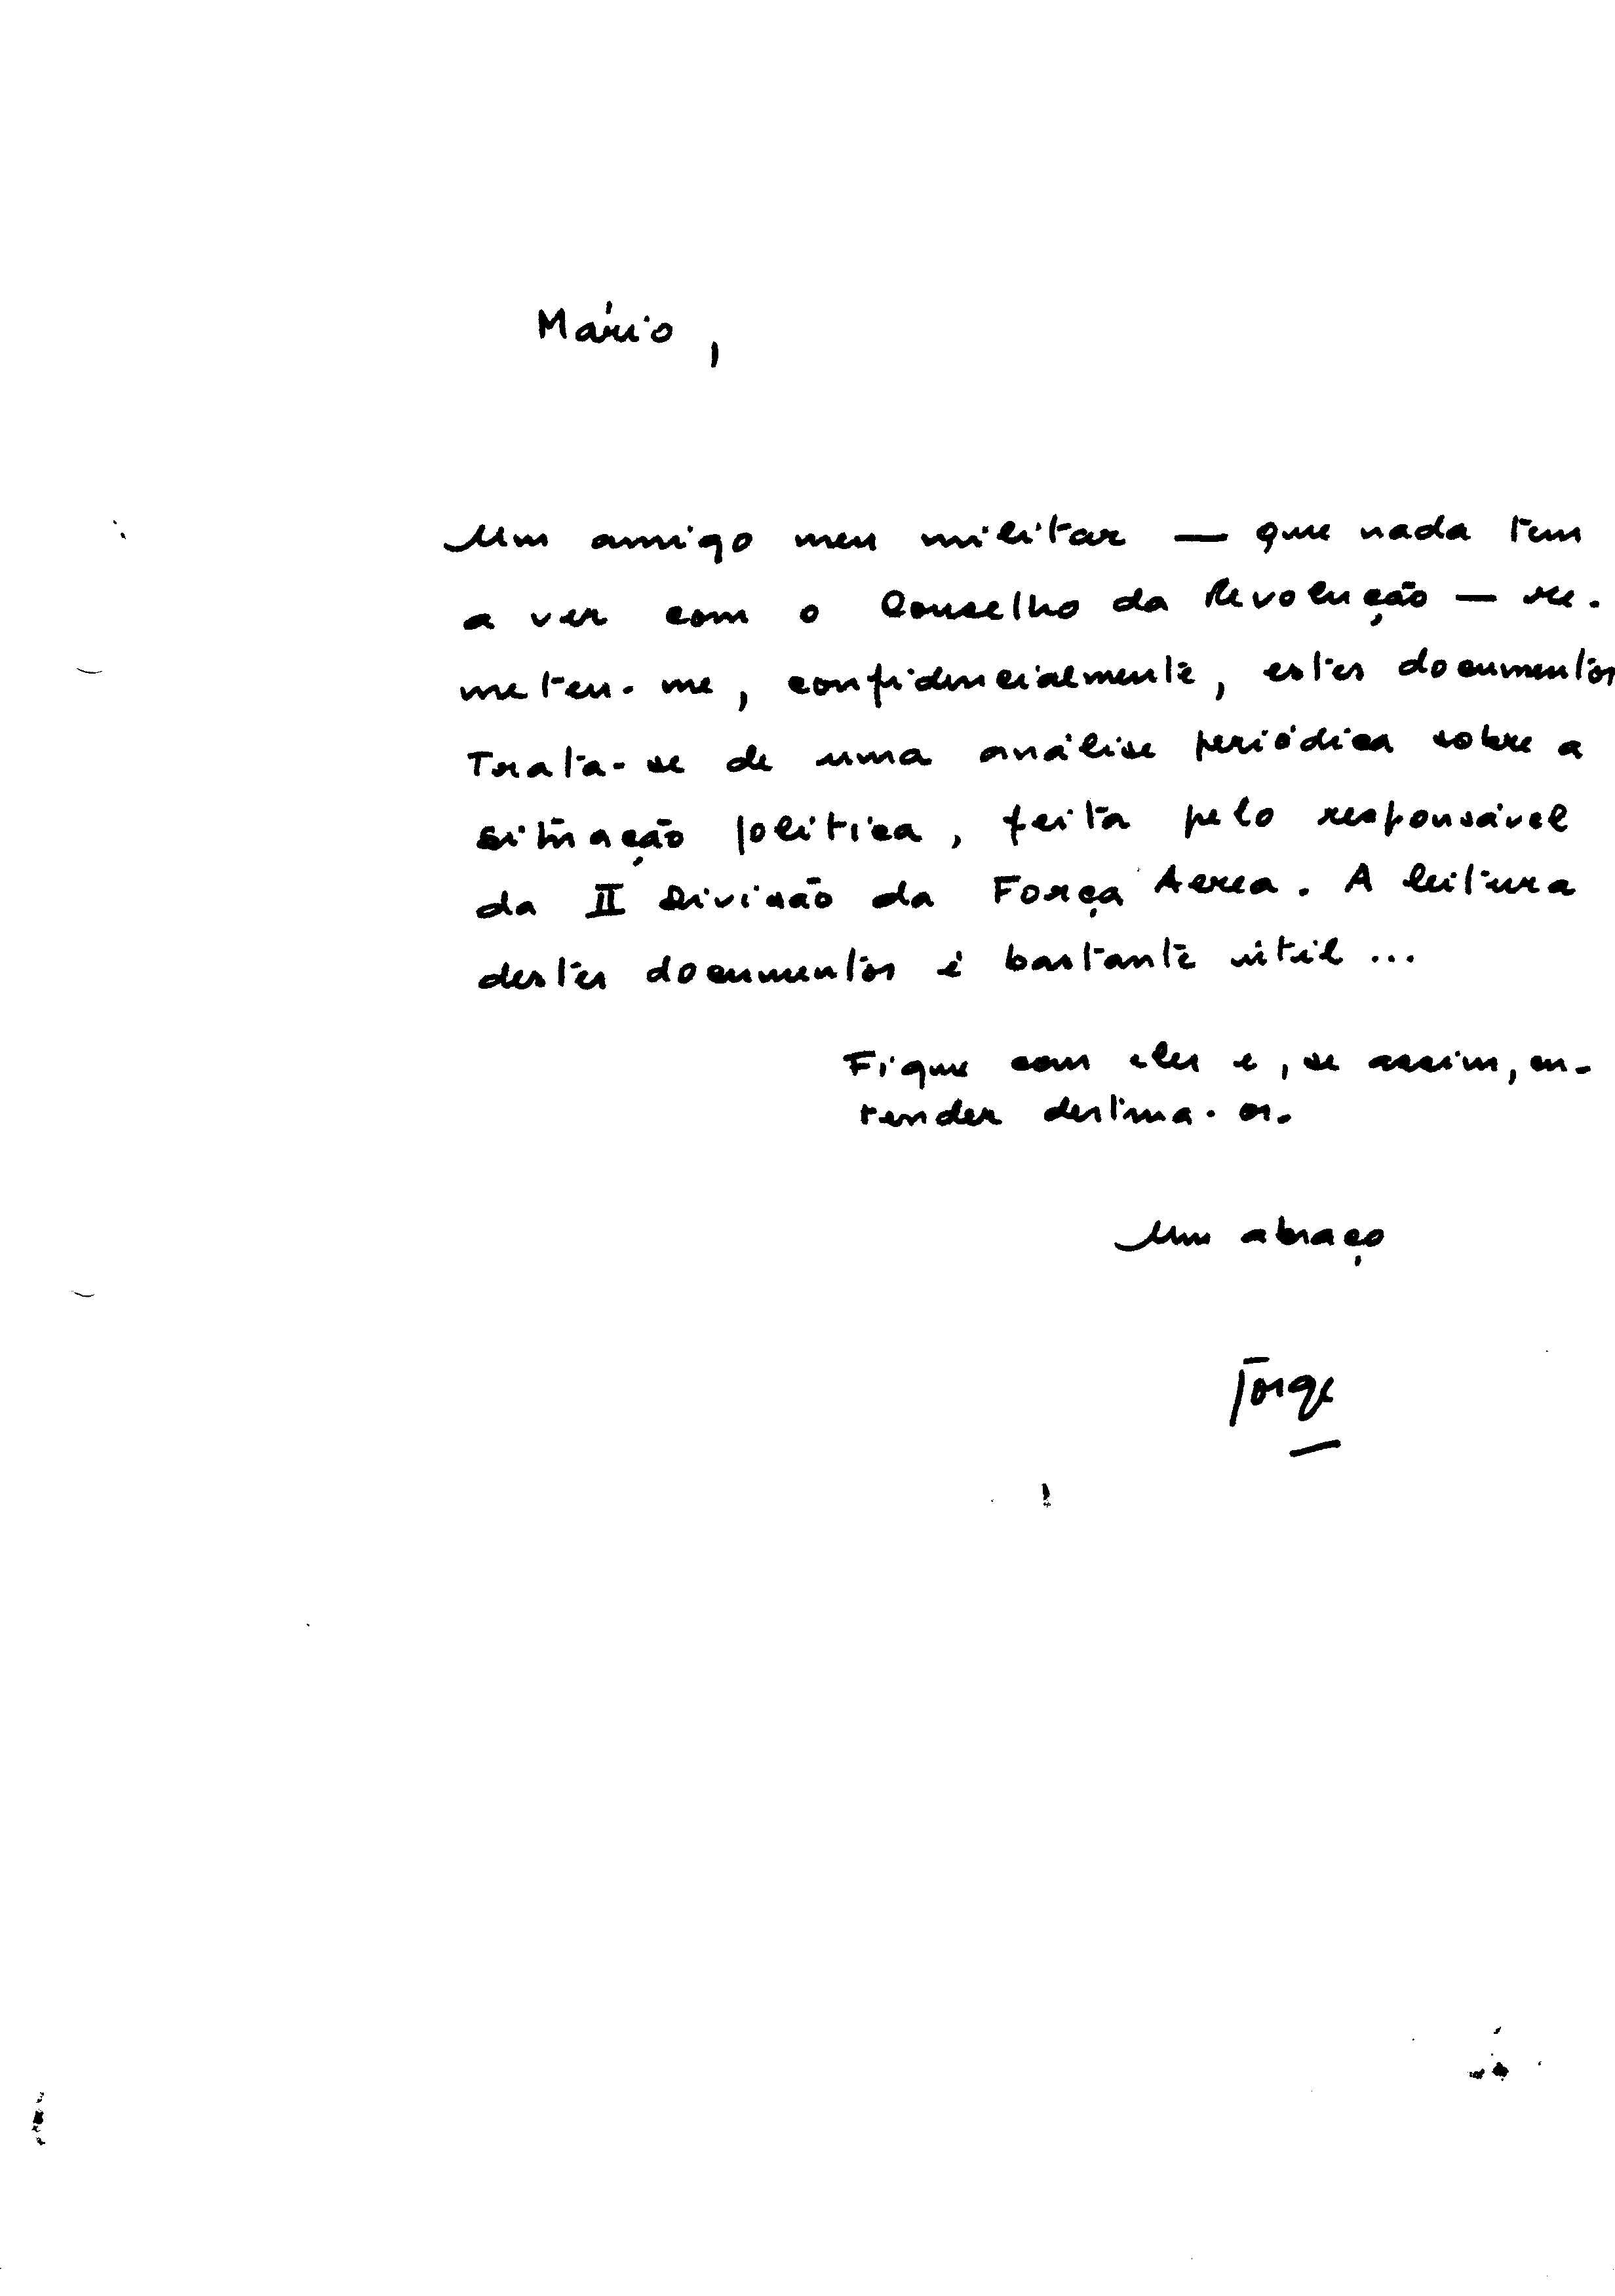 Mário,
Um amigo meu militar — que nada tem
a ver com o Conselho da Revolução — re-
meteu-me, confidencialmente, estes documentos
Trata-se de uma análise periódica sobre a
situação política, feita pelo responsável
da II Divisão da Força Aérea. A leitura
destes documentos é bastante útil ...
Fique com eles e, se assim, en-
tender destrua-os.
Um abraço
Jorge